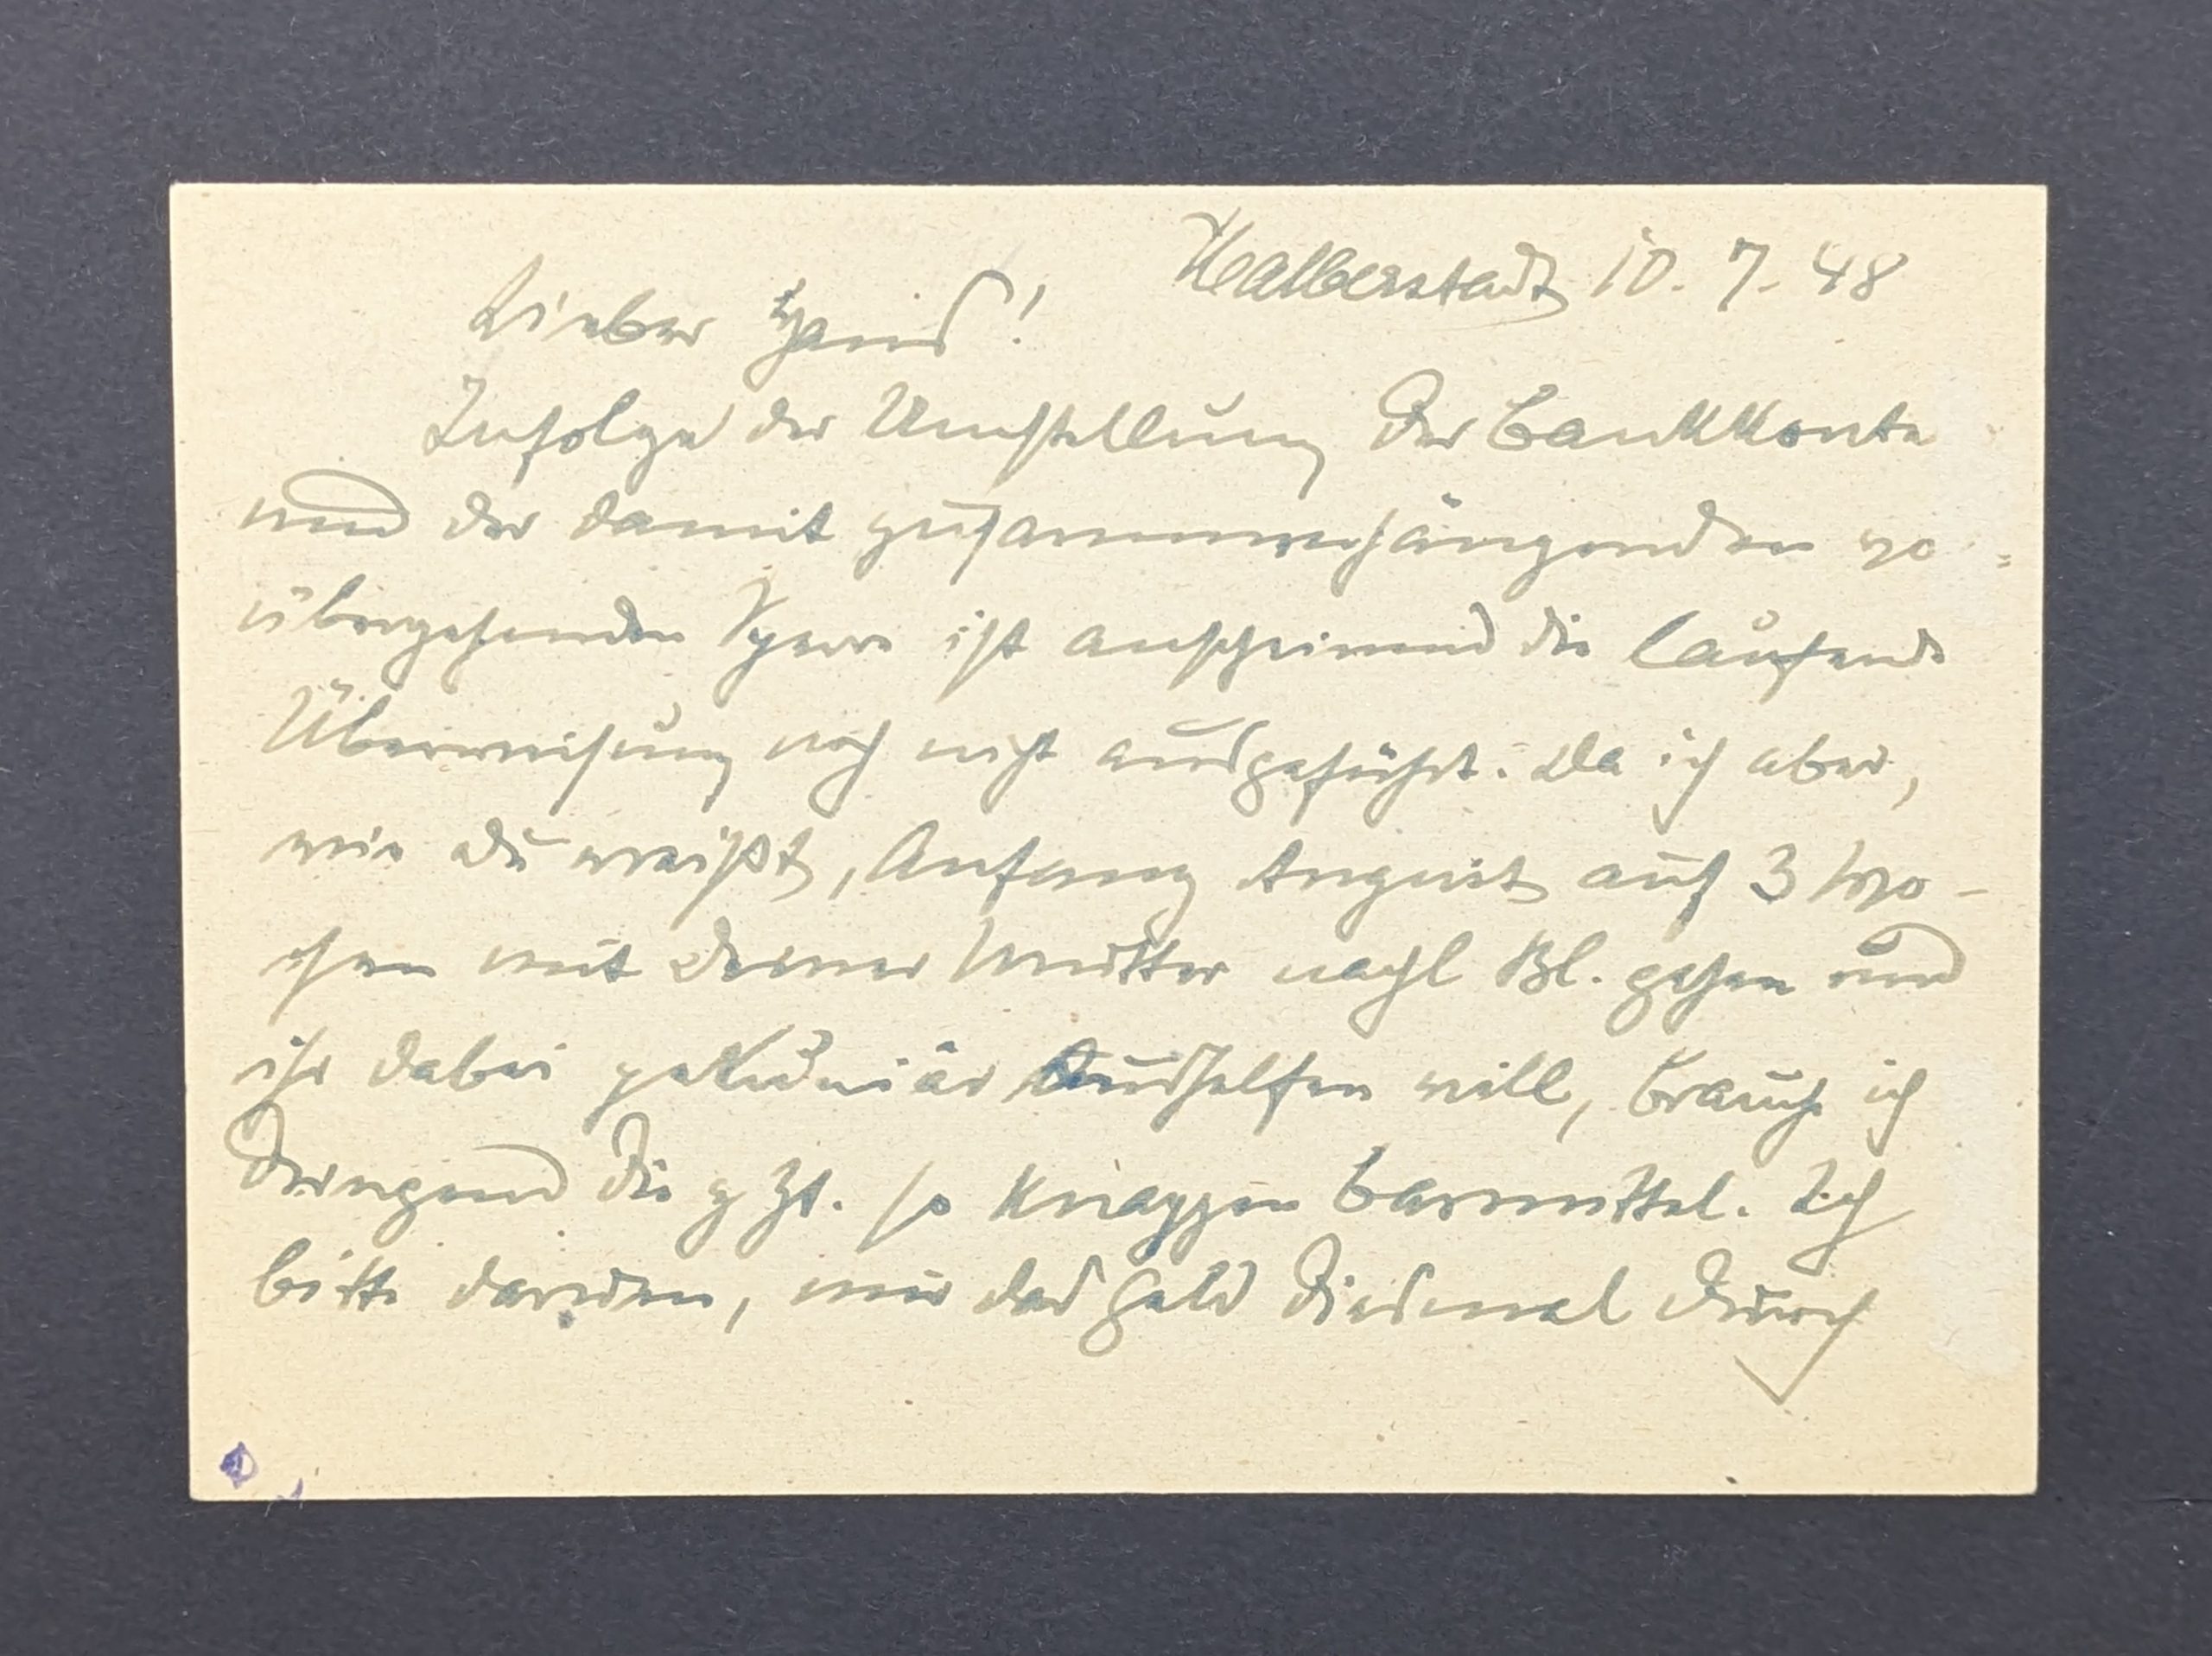 Halberstadt 10. 7. 48
Lieber Hans!
Infolge der Umstellung der Bankkonten
und der damit zusammenhängenden vo=
übergehenden Sperre ist anscheinend die laufende
Überweisung noch nicht ausgeführt. Da ich aber,
wie Du weißt, Anfang August auf 3 Wo-
chen mit Deiner Mutter nach Bl. gehen und
ihr dabei pekuniär aushelfen will, brauche ich
dringend die z Zt. so knappen Barmittel. Ich
bitte darum, mir das Geld diesmal durch